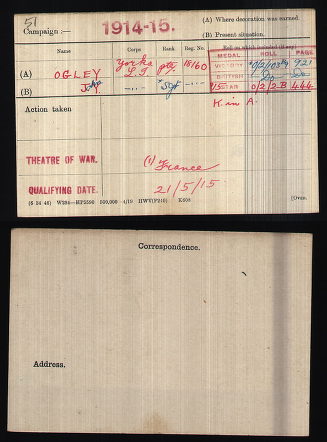 51
Campaign :— 1914-15.
(A) Where decoration was earned.
(B) Present situation.
Name Corps Rank Reg. No. Roll on which included (if any)
MEDAL ROLL PAGE
(A) OGLEY Yorks L.I. Pte 18160
VICTORY 0/2/103B9 921
(B) John —"— Sgt —"—
BRITISH Do Do
15 STAR 0/2/2B 444
Action taken K in A.
THEATRE OF WAR. (1) France
QUALIFYING DATE. 21/5/15
(6 34 46) W234—HP5590 500,000 4/19 HWV(P240) K608 [Over.
Correspondence.
Address.